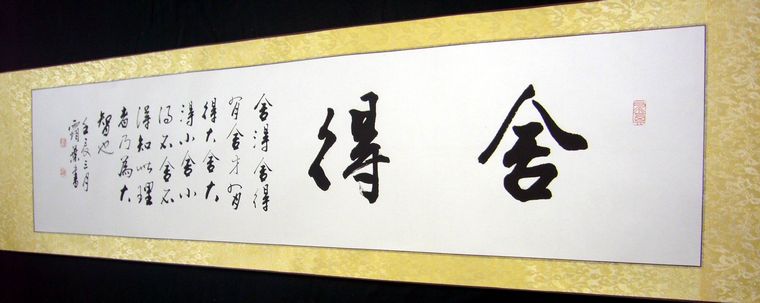 舍得
舍得舍得
有舍才有
得大舍大
得小舍小
得不舍不
得知此理
者乃為大
智也
壬辰三月
霜葉書